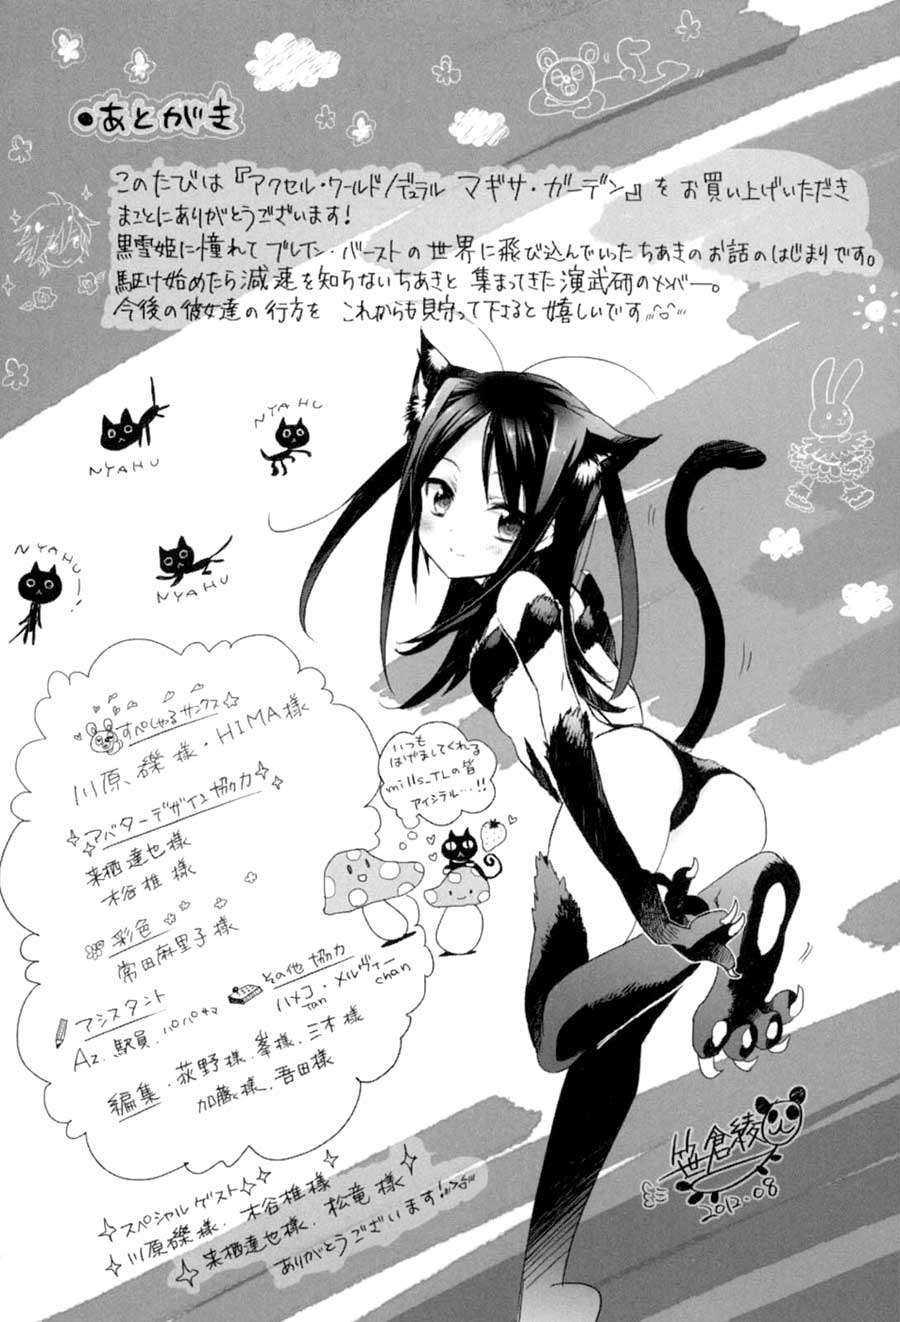 ●あとがき
このたびは『アクセル・ワールド/デュラル マギサ・ガーデン』をお買い上げいただき
まことにありがとうございます!
黒雪姫に憧れてブレイン・バーストの世界に飛び込んでいったちあきのお話のはじまりです。
駆け始めたら減速を知らないちあきと集まってきた演武研のメンバー。
今後の彼女達の行方を これからも見守って下さると嬉しいです
NYAHU
NYAHU
NYAHU!
NYAHU
すぺしゃるサンクス
川原 礫様・HIMA様
アバターデザイン協力
来栖達也様
木谷椎様
彩色
常田麻里子様
アシスタント
Az. 駅員. パパサマ
その他協力
ハメコ・メルヴィー
tan chan
編集. 荻野様. 峯様. 三木様
加藤様. 吾田様
いつも
はげましてくれる
mills_TLの皆
アイシテル…!!
スペシャルゲスト
川原礫様. 木谷椎様
来栖達也様. 松竜様
ありがとうございます!
笹倉綾
2012.08